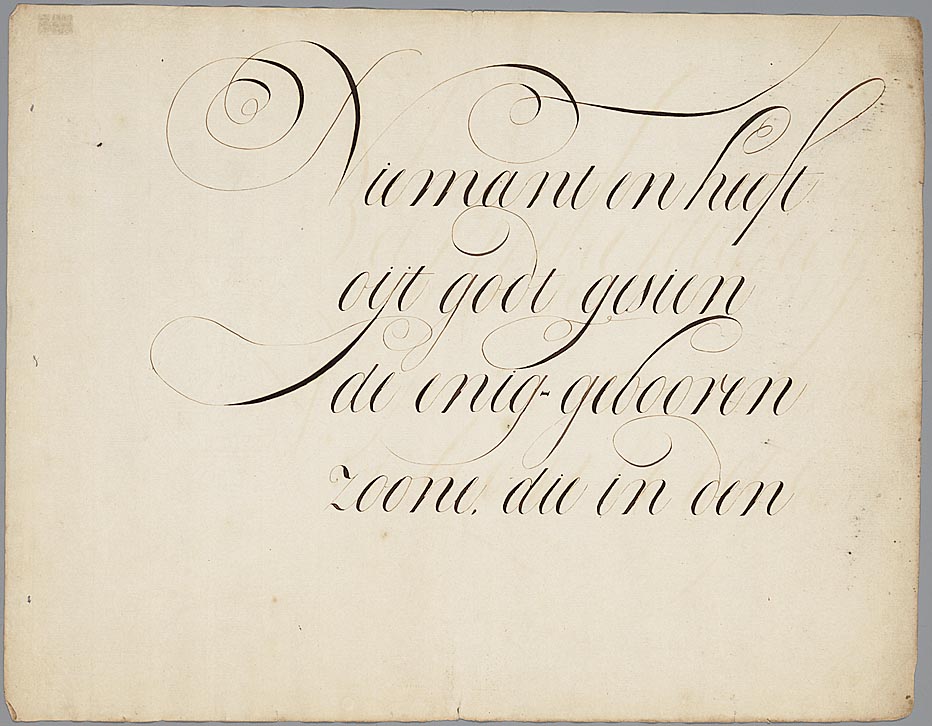 Niemant en heeft
oijt godt gesien
de enig-gebooren
zoone, die in den